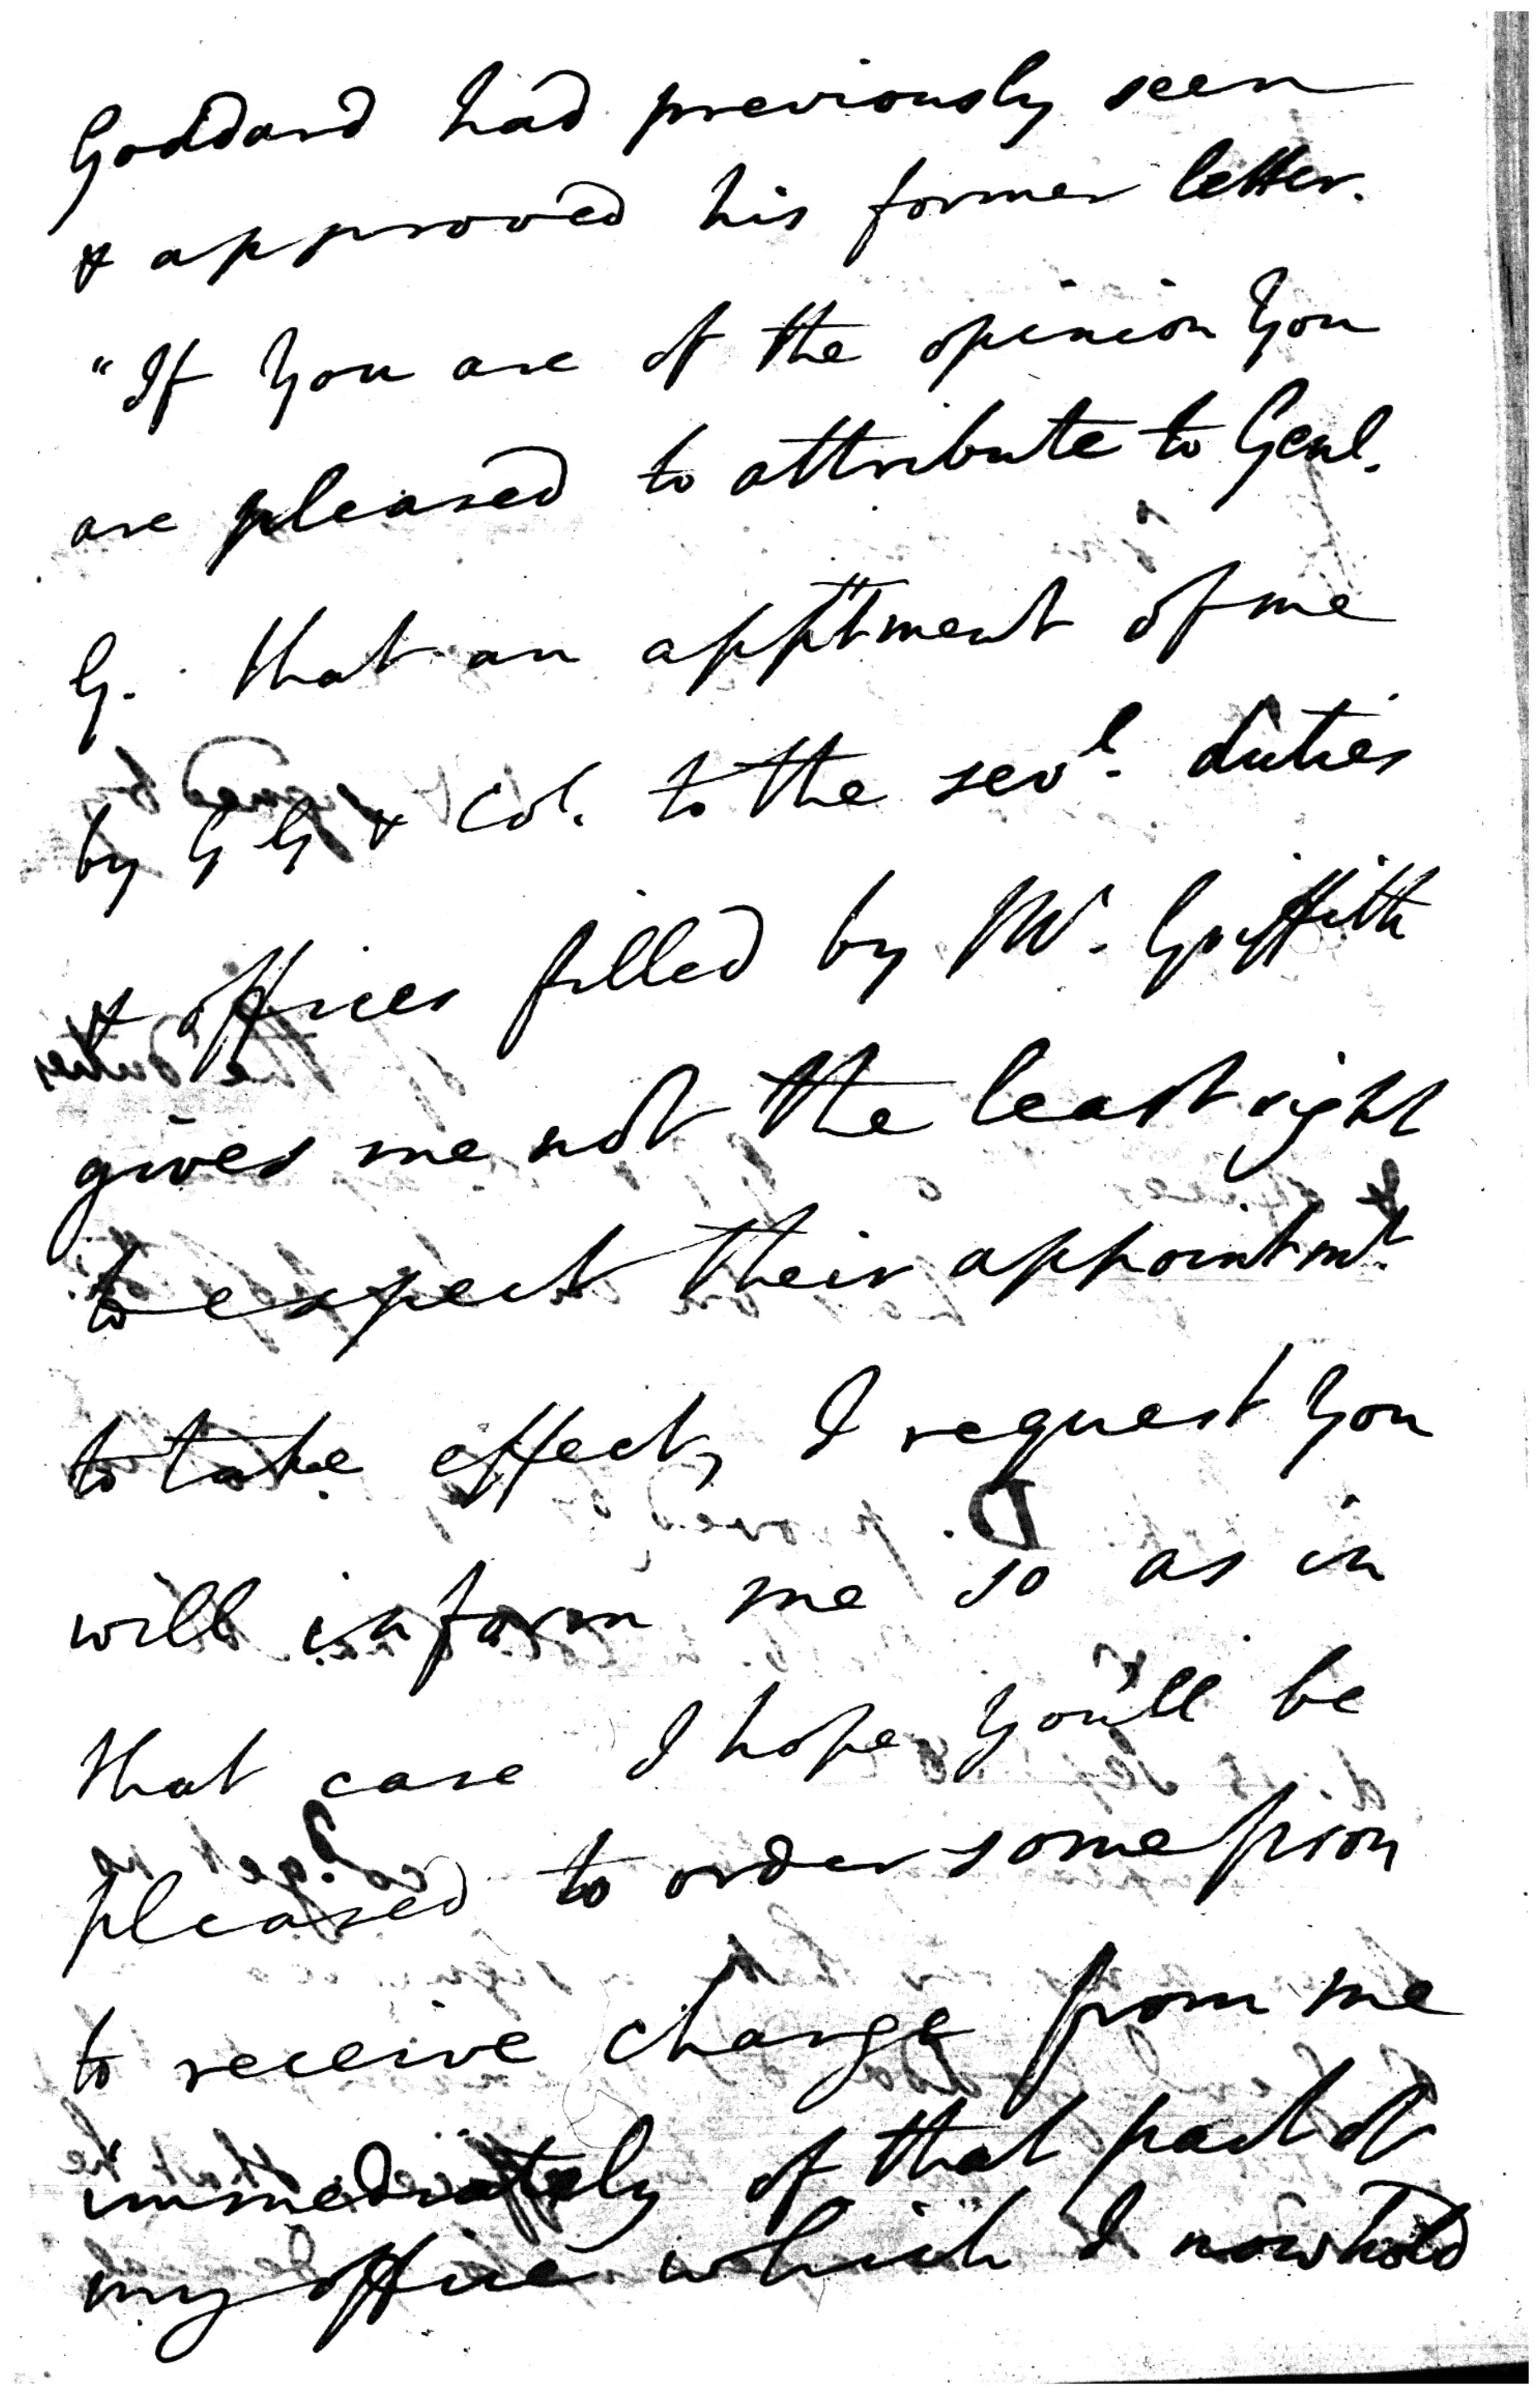 Goddard had previously seen
& approved his former letter.
"If You are of the opinion You
are pleased to attribute to Genl.
G. that an apptment of me
by G G & Col. to the sevl. duties
& offices filled by Mr. Griffith
gives me not the least right
to expect their appointmt.
to take effect, I request You
will inform me so as in
that case I hope You'll be
pleased to order some pson
to receive charge from me
immediately of that part of
my office which I now hold